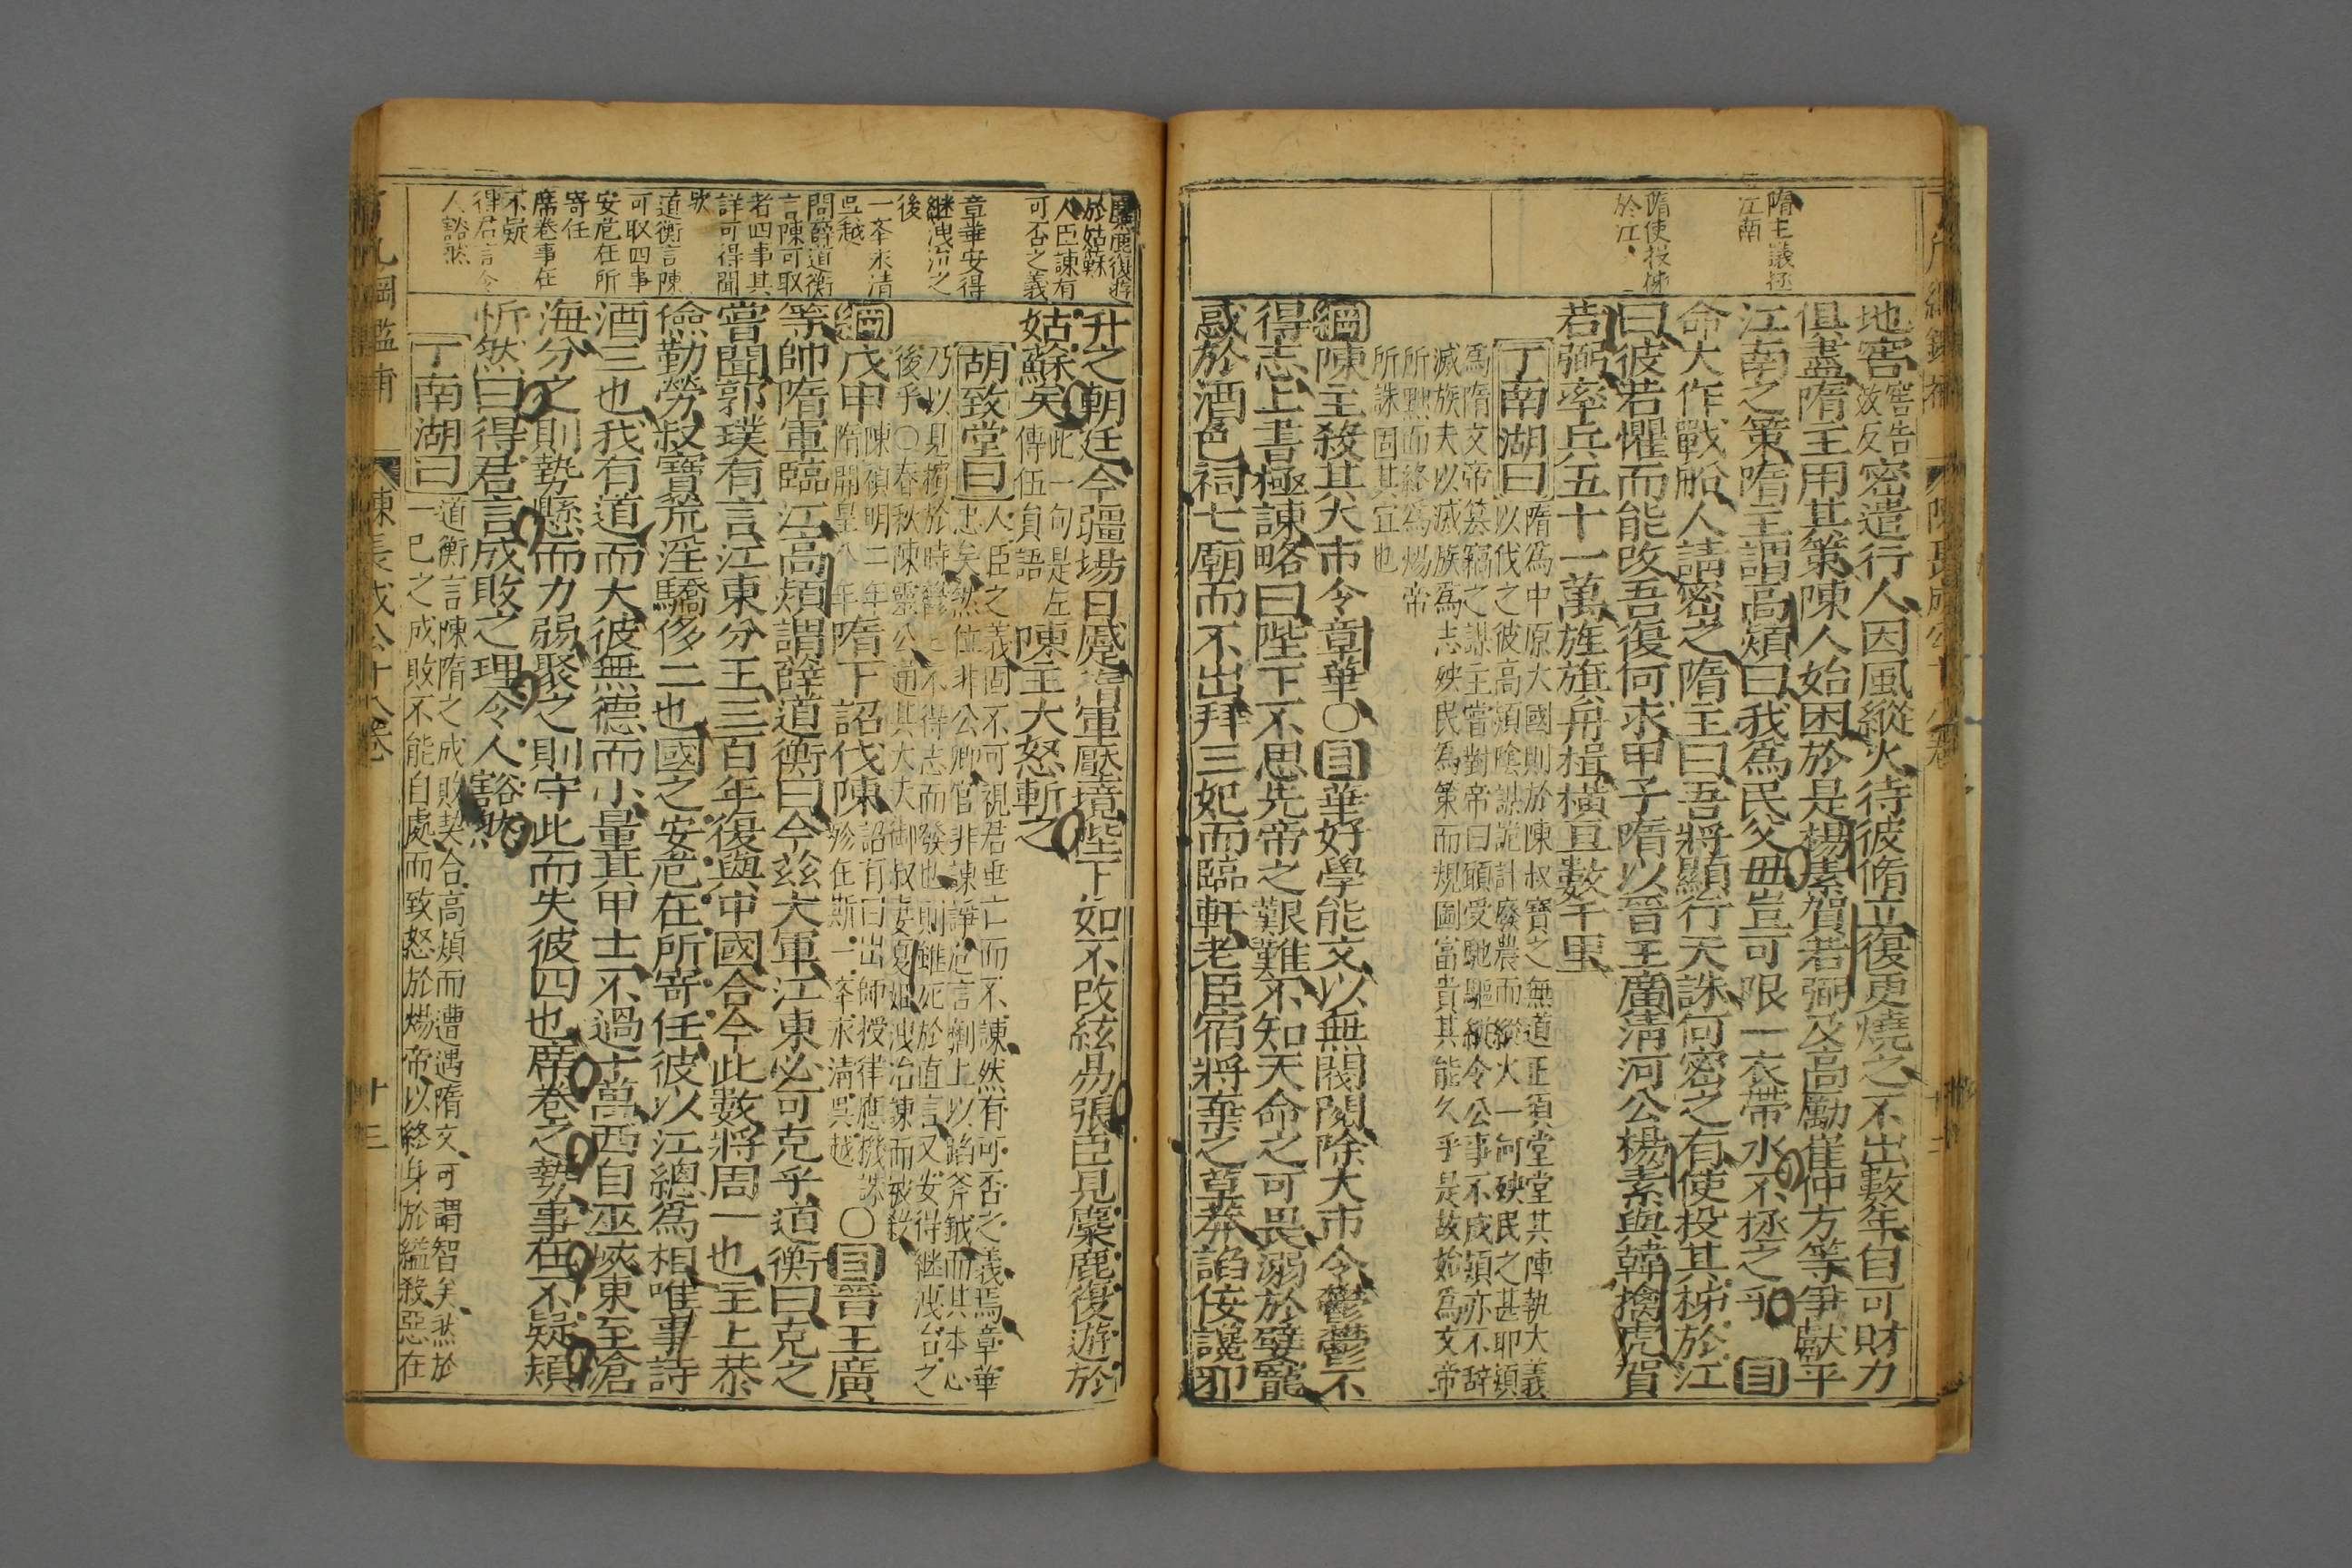 隋主議拯
江南
隋使投柹
於江
地窖窖告
效反密遣行人因風縱火待彼脩立復更燒之不出數年自可財力
俱盡隋主用其策陳人始困於是楊素賀若弼及高勱崔仲方等爭獻平
江南之策隋主謂高熲曰我爲民父母豈可限一衣帶水不拯之乎 目
命大作戰船人請密之隋主曰吾將顯行天誅何密之有使投其柹於江
曰彼若懼而能改吾復何求甲子隋以晉王廣淸河公楊素與韓擒虎賀
若弼率兵五十一萬旌旗舟楫橫亘數千里
丁南湖曰
隋爲中原大國則於陳叔寶之無道正須堂堂其陣執大義
以伐之彼高熲陰謀詭計廢農而縱火一何殃民之甚耶熲
爲隋文帝簒竊之謀主當對帝曰願受馳驅縱令公事不成熲亦不辞
滅族夫以滅族爲志殃民為策而規圖富貴其能久乎是故始為文帝
所黜而終爲煬帝
所誅固其宜也
綱陳主殺其大市令章華〇目華好學能文以無閥閱除大市令鬱鬱不
得志上書極諫略曰陛下不思先帝之艱難不知天命之可畏溺於嬖寵
惑於酒色祠七廟而不出拜三妃而臨軒老臣宿將棄之草莽諂佞讒邪
麋鹿復游
於姑蘇
人臣諫有
可否之義
章華安得
継洩冶之
後
一夲永清
呉越
問薛道衡
言陳可取
者四事其
詳可得聞
歟
道衡言陳
可取四事
安危在所
寄任
席卷事在
不疑
得君言令
人豁然
升之朝廷今疆場日蹙隋軍壓境陛下如不改絃易張臣見麋鹿復遊於
姑蘇矣此一句是左
傳伍貟語陳主大怒斬之
胡致堂曰
人臣之義固不可視君垂亡而不諫然有可否之義焉章華
忠矣然位非公卿官非諫諍危言劘上以蹈斧鉞而其本心
乃以見擯於時鬱鬱不得志而發也則雖死於直言又安得継洩冶之
後乎〇春秋陳靈公通其大夫御叔妻夏姬洩冶諫而被殺
綱戊申陳禎明二年
隋開皇八年隋下詔伐陳詔有曰出師授律應機誅
殄在斯一夲永淸呉越〇目晉王廣
等帥隋軍臨江高熲謂薛道衡曰今玆大軍江東必可克乎道衡曰克之
嘗聞郭璞有言江東分王三百年復與中國合今此數將周一也主上恭
儉勤勞叔寶荒淫驕侈二也國之安危在所寄任彼以江總爲相唯事詩
酒三也我有道而大彼無德而小量其甲士不過十萬西自巫峽東至滄
海分之則勢懸而力弱聚之則守此而失彼四也席卷之勢事在不疑熲
忻然曰得君言成敗之理令人豁然
丁南湖曰
道衡言陳隋之成敗契合高熲而遭遇隋文可謂智矣然於
一己之成敗不能自處而致怒於煬帝以終身於縊殺惡在
十三